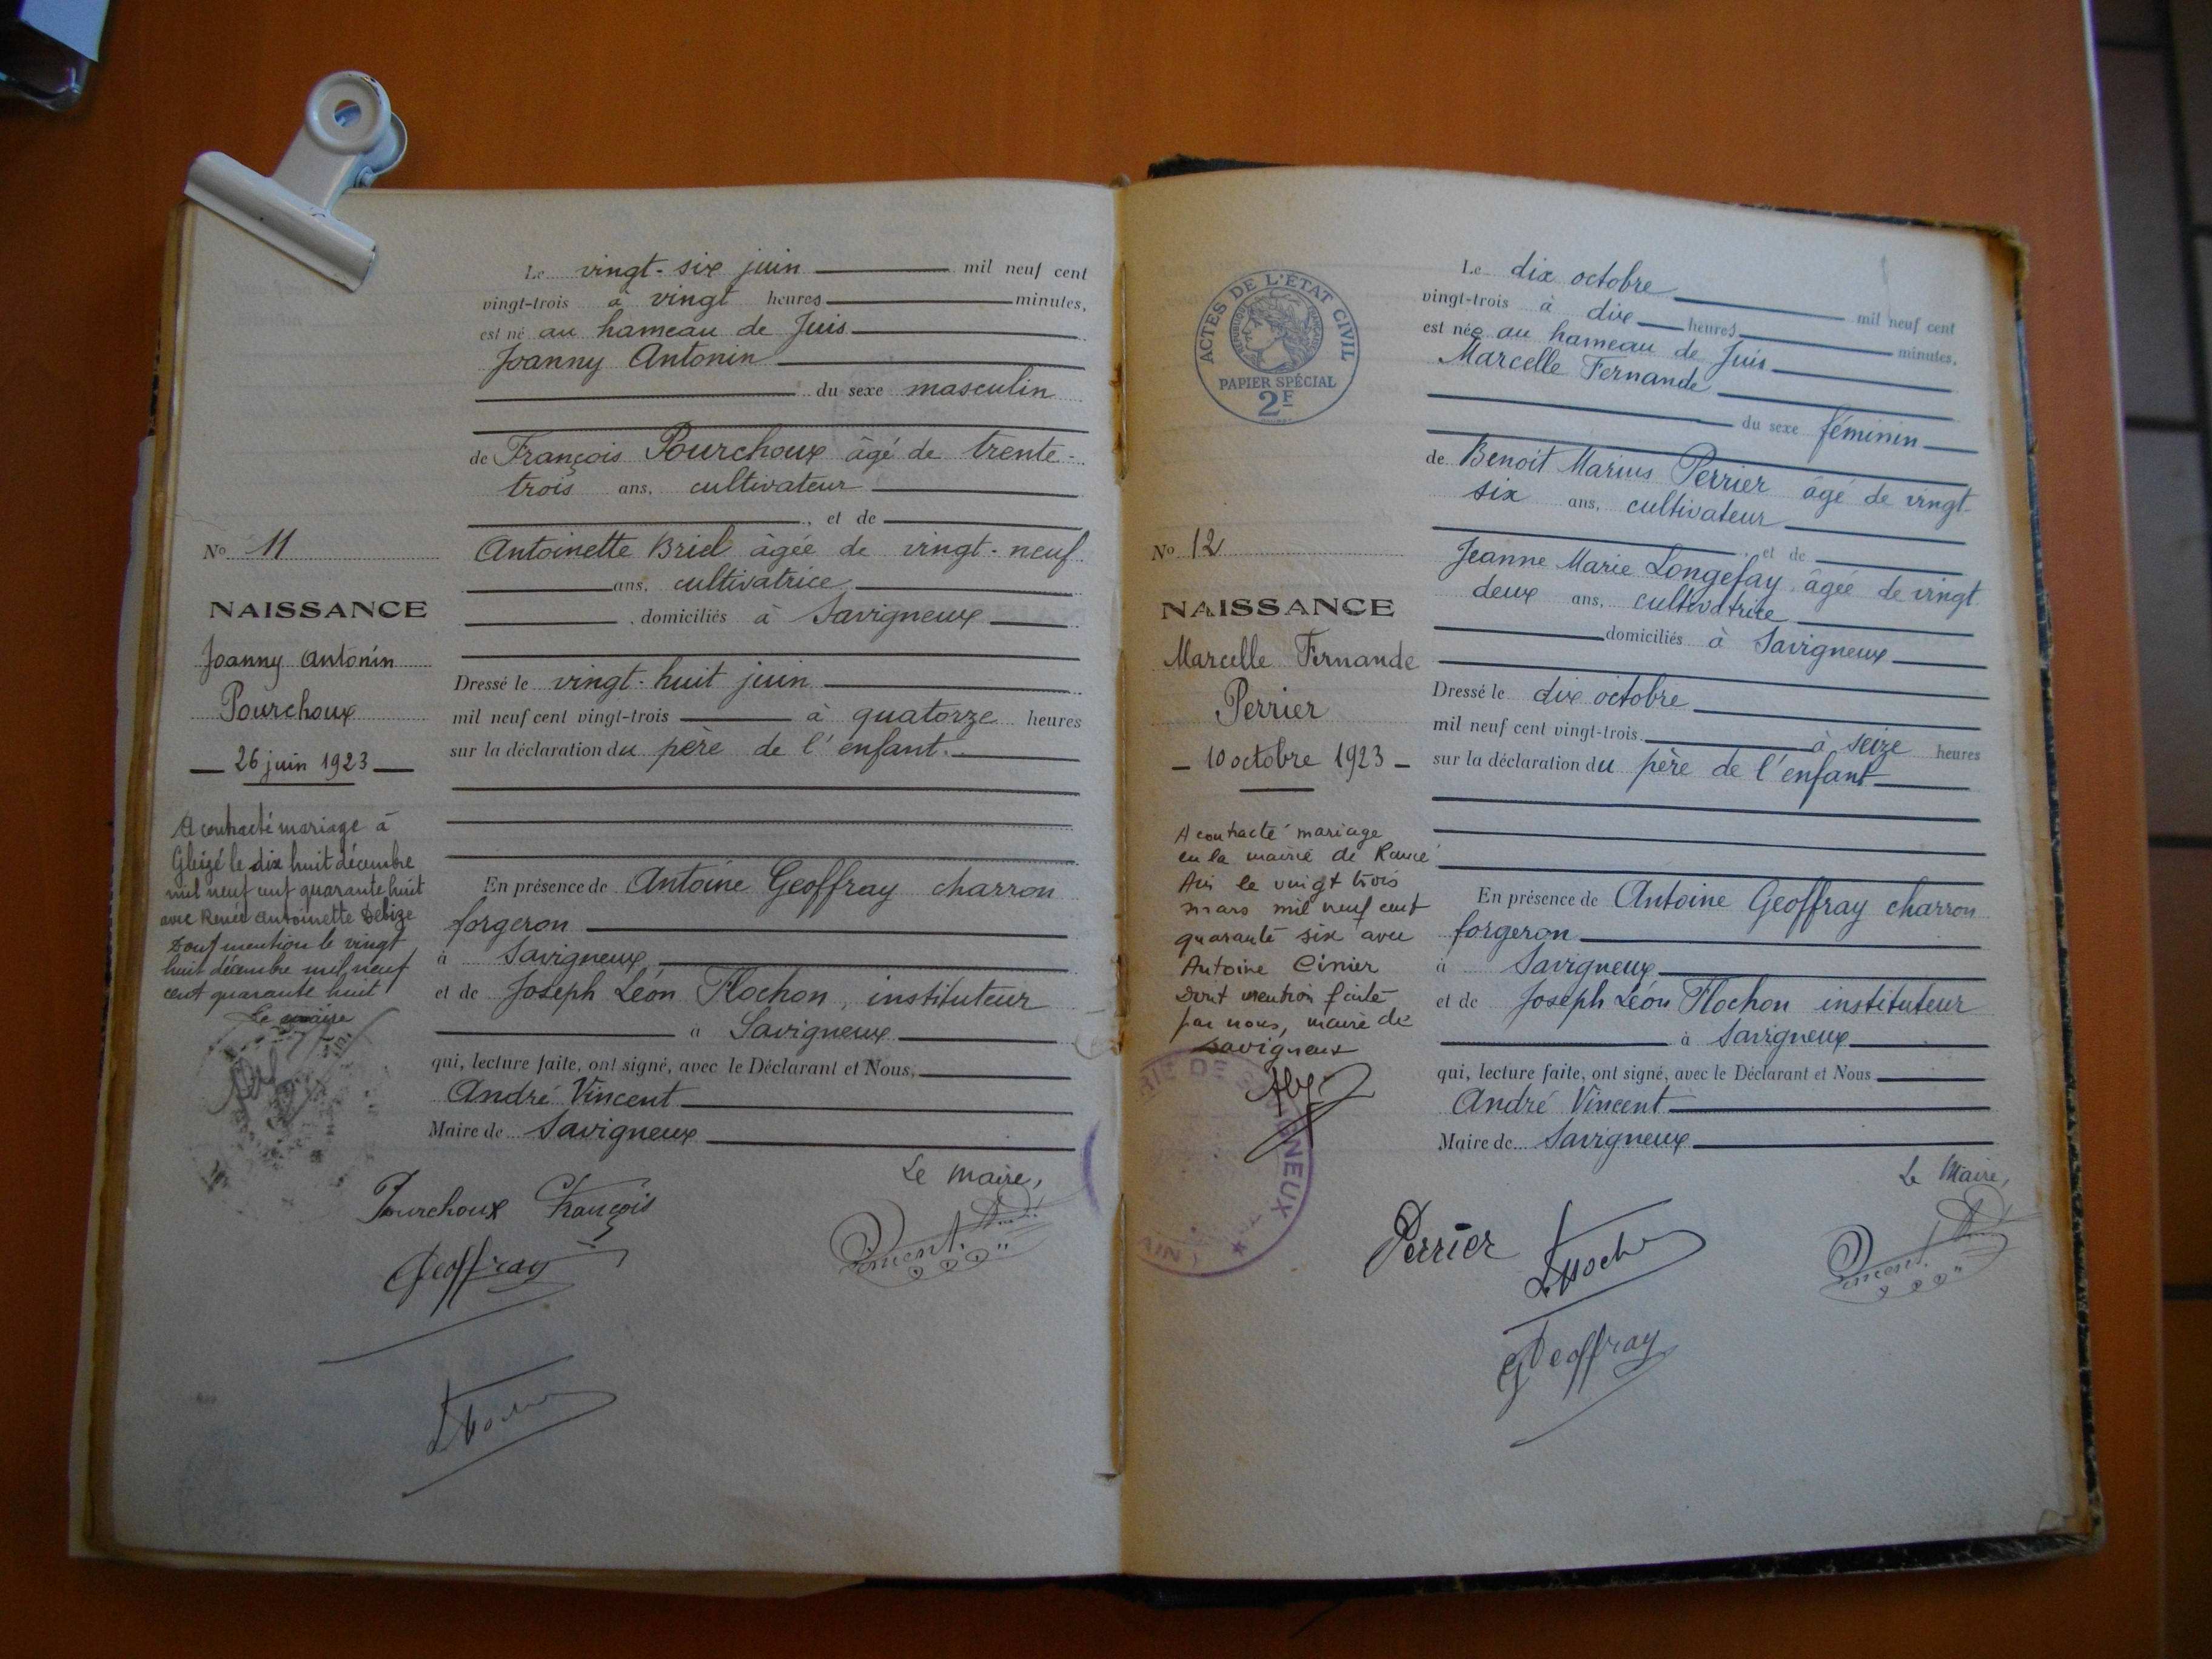 Le vingt-six juin mil neuf cent
vingt-trois à vingt heures minutes,
est né au hameau de Juis
Joanny Antonin
du sexe masculin
de François Pourchoux âgé de trente-
trois ans, cultivateur
, et de
Antoinette Briel âgée de vingt-neuf
ans, cultivatrice,
, domiciliés à Savigneux
Dressé le vingt-huit juin
mil neuf cent vingt-trois à quatorze heures
sur la déclaration du père de l'enfant.
En présence de Antoine Geoffray charron
forgeron
à Savigneux
et de Joseph Léon Flochon, instituteur
à Savigneux
qui, lecture faite, ont signé, avec le Déclarant et Nous,
André Vincent
Maire de Savigneux
Le Maire,
Pourchoux François
Geoffray
No 11
NAISSANCE
Joanny Antonin
Pourchoux
26 juin 1923
A contracté mariage à
Gleizé le dix huit décembre
mil neuf cent quarante huit
avec Renée Antoinette Debize
Dont mention le vingt
huit décembre mil neuf
cent quarante huit
Le maire
ACTES DE L'ÉTAT CIVIL
RÉPUBLIQUE FRANÇAISE
PAPIER SPÉCIAL
2F
No 12
NAISSANCE
Marcelle Fernande
Perrier
10 octobre 1923
A contracté mariage
en la mairie de Rancé
Ain le vingt trois
mars mil neuf cent
quarante six avec
Antoine Cinier
Dont mention faite
par nous, maire de
Savigneux
MAIRIE DE SAVIGNEUX
(AIN)
Le dix octobre mil neuf cent
vingt-trois à dix heures minutes.
est née au hameau de Juis
Marcelle Fernande
du sexe féminin
de Benoit Marius Perrier âgé de vingt-
six ans, cultivateur
, et de
Jeanne Marie Longefay, âgée de vingt
deux ans, cultivatrice
domiciliés à Savigneux
Dressé le dix octobre
mil neuf cent vingt-trois à seize heures
sur la déclaration du père de l'enfant
En présence de Antoine Geoffray charron
forgeron
à Savigneux
et de Joseph Léon Flochon instituteur
à Savigneux
qui, lecture faite, ont signé, avec le Déclarant et Nous
André Vincent
Maire de Savigneux
Le Maire,
Perrier
Geoffray